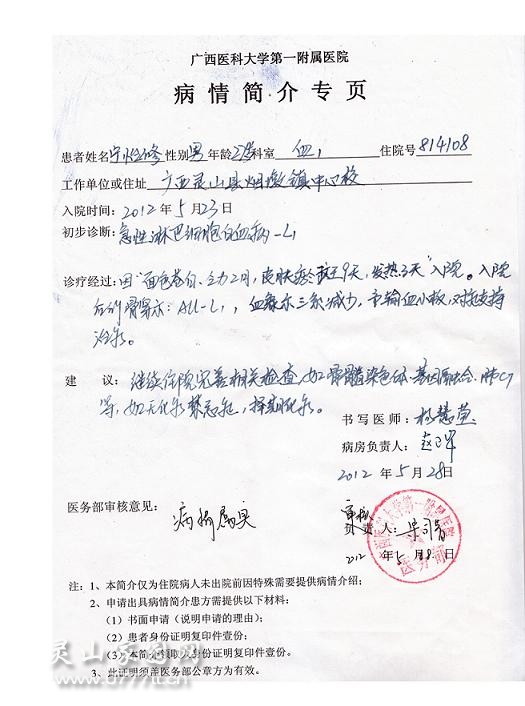 广西医科大学第一附属医院
病情简介专页
患者姓名 性别 男 年龄 科室 血 住院号 814108
工作单位或住址 广西灵山县烟墩镇中心校
入院时间：2012 年 5 月 23 日
初步诊断：急性淋巴细胞白血病-L1
诊疗经过：因"面色苍白、乏力2月，皮肤瘀 9天，发热3天"入院。入院
后行骨穿示：ALL-L1，血象示三系减少，予输血小板，对症支持
治疗。
建 议：继续住院完善相关检查，如骨髓染色体、基因融合、肺CT
等，如无化疗禁忌症，择期化疗。
书写医师：
病房负责人：
2012 年 5 月 28 日
医务部审核意见：
病情属实
负责人：
2012 年 5 月 28 日
广西医科大学第一附属医院
医务部
注：1、本简介仅为住院病人未出院前因特殊需要提供病情介绍；
2、申请出具病情简介患方需提供以下材料：
（1）书面申请（说明申请的理由）；
（2）患者身份证明复印件壹份；
（3）本简介领取人身份证明复印件壹份。
3、此证明须盖医务部公章方为有效。
灵山家园网
www.0777it.cn